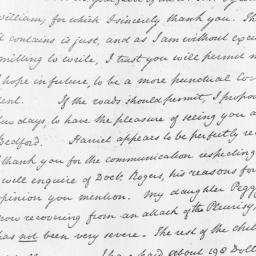 William, for which I sincerely thank you. Th
it contains is just, and as I am without excu
unwilling to write, I trust you will permit m
hope in future, to be a more punctual cor
dent. If the roads should permit, I propo
few days to have the pleasure of seeing you a
Bedford. Harriet appears to be perfectly re
thank you for the communication respecting
will enquire of Doctr. Rogers, his reasons for
opinion you mention. My daughter Pegg
now recovering from an attack of the Pleurisy,
has not been very severe. The rest of the chil
I have paid about 190 Doll